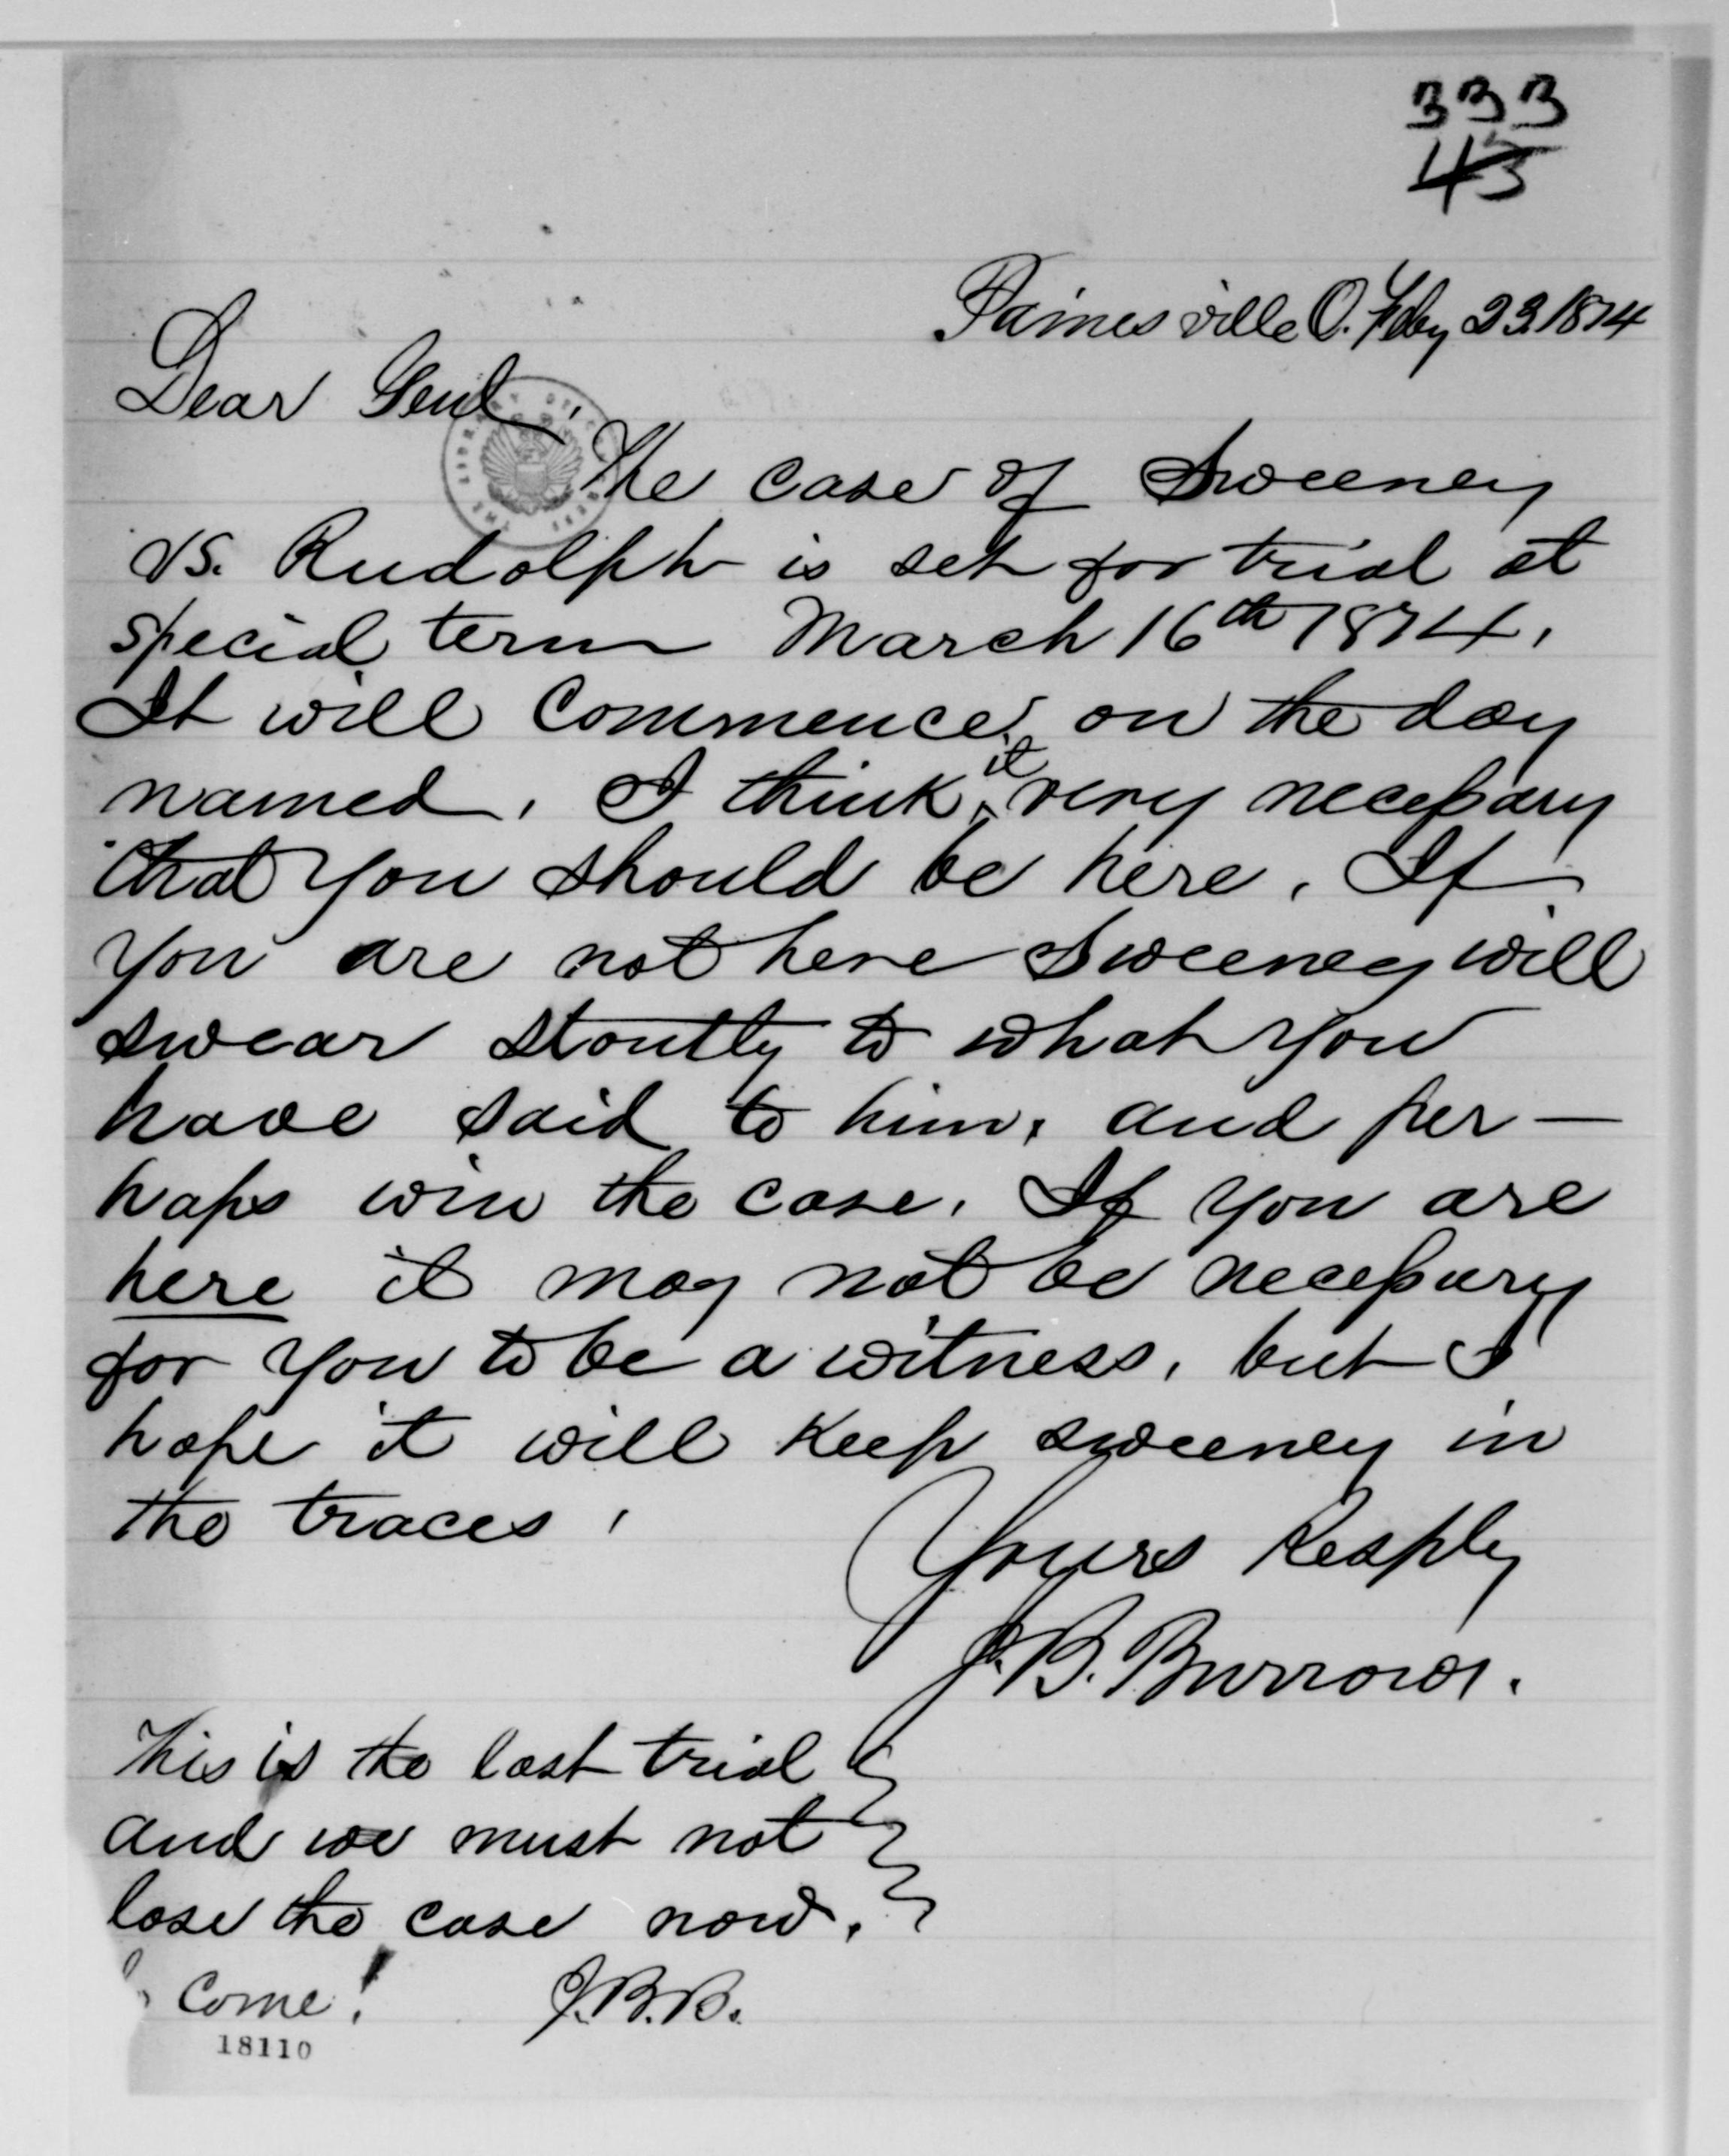 333
43
Painesville O. Feby 23 1874
Dear Genl,
The case of Sweeney
vs. Rudolph is set for trial at
special term March 16th 1874.
It will commence on the day
named. I think it very necessary
that you should be here. If
you are not here Sweeney will
swear stoutly to what you
have said to him, and per-
haps win the case. If you are
here it may not be necessary
for you to be a witness, but I
hope it will keep sweeney in
the traces.
Yours Resply
J. B. Burrows.
This is the last trial
and we must not
lose the case now.
Come! J.B.B.
18110